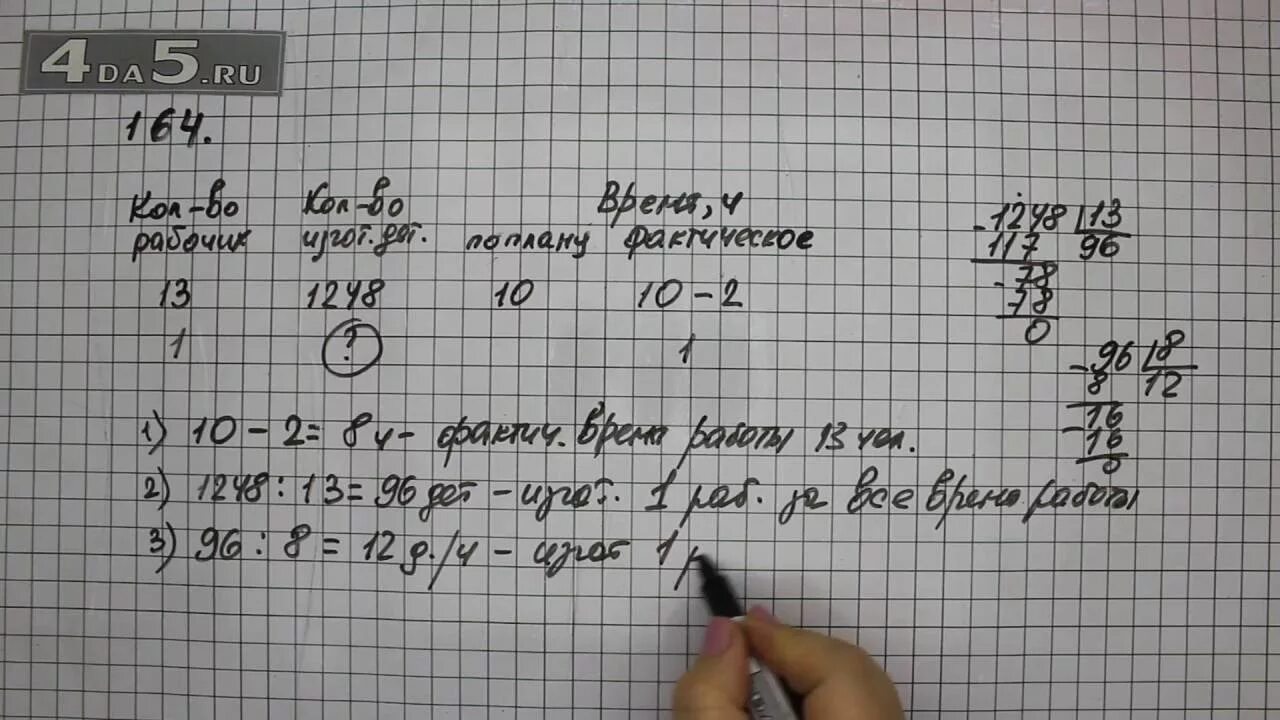 4DA5.RU
164.
Кол-во Кол-во Время, ч
рабочих изгот. дет. по плану фактическое
13 1248 10 10 - 2
1 ? 1
1) 10 - 2 = 8 ч - фактич. время работы 13 чел.
2) 1248 : 13 = 96 дет - изгот. 1 раб. за все время работы
3) 96 : 8 = 12 д./ч - изгот 1 р
- 1248 | 13
117 96
- 78
78
0
- 96 | 8
8 12
- 16
16
0